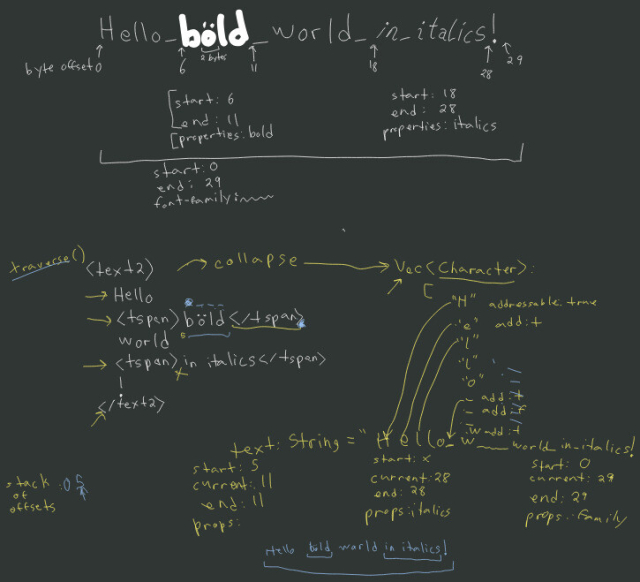 Hello_böld_world_in_italics!
2 bytes
byte offset 0
6
11
18
28
29
start: 6
end: 11
properties: bold
start: 18
end: 28
properties: italics
start: 0
end: 29
font-family:
traverse()
<text2>
collapse
Vec<Character>:
[
Hello
"H" addressable: true
<tspan>böld</tspan>
"e" add:t
world
"l"
<tspan>in italics</tspan>
"l"
!
"o"
_ add:t
</text2>
_ add:f
w add:t
text: String = "Hello_w world_in_italics!
start: 5
current: 11
end: 11
props:
start: x
current: 28
end: 28
props: italics
start: 0
current: 29
end: 29
props: family
stack of offsets: 0 5
Hello böld world in italics!